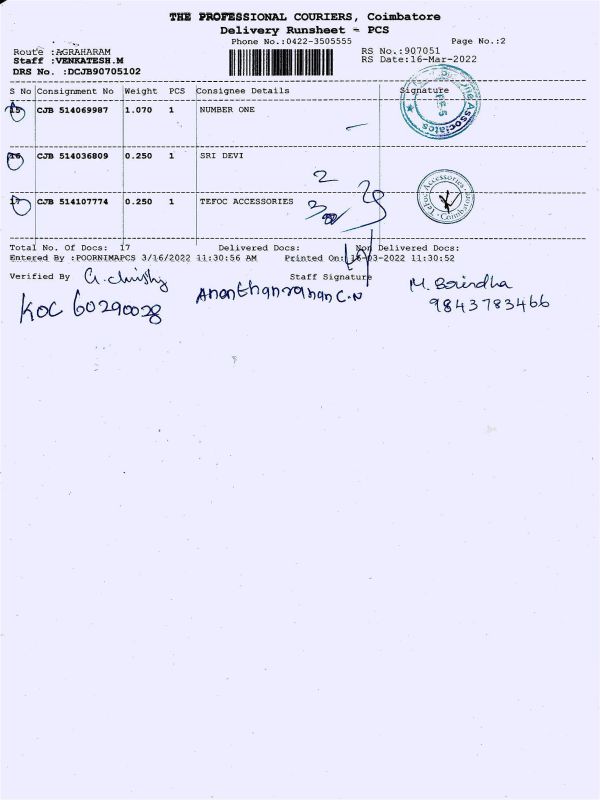 THE PROFESSIONAL COURIERS, Coimbatore
Delivery Runsheet - PCS
Phone No.:0422-3505555
Page No.:2
Route :AGRAHARAM
RS No.:907051
Staff :VENKATESH.M
RS Date:16-Mar-2022
DRS No. :DCJB90705102
S No Consignment No Weight PCS Consignee Details Signature
15 CJB 514069987 1.070 1 NUMBER ONE
16 CJB 514036809 0.250 1 SRI DEVI
2
17 CJB 514107774 0.250 1 TEFOC ACCESSORIES
Tefoc Accessories Coimbatore
Total No. Of Docs: 17 Delivered Docs: Non Delivered Docs:
Entered By :POORNIMAPCS 3/16/2022 11:30:56 AM Printed On: 16-03-2022 11:30:52
Verified By Staff Signature
KOC 60290028
9843783466